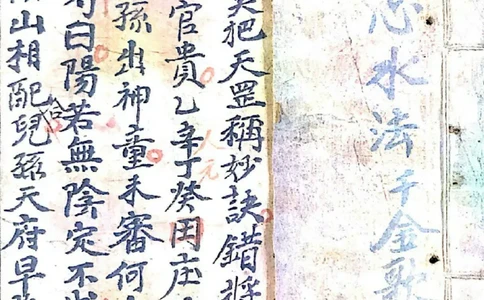 水法千金歌
把天罡稱妙訣錯將
官貴乙辛丁癸田庄
人元
孫出神童未審何
白陽若無陰定不
山相配兒孫天府早